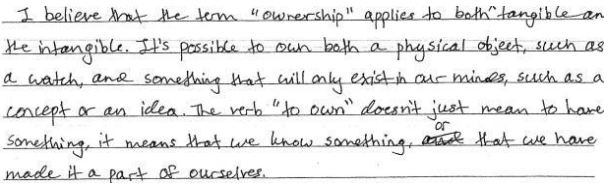 I believe that the term "ownership" applies to both "tangible an
the intangible. It's possible to own both a physical object, such as
a watch, and something that will only exist in our minds, such as a
concept or an idea. The verb "to own" doesn't just mean to have
something, it means that we know something, or that we have
made it a part of ourselves.